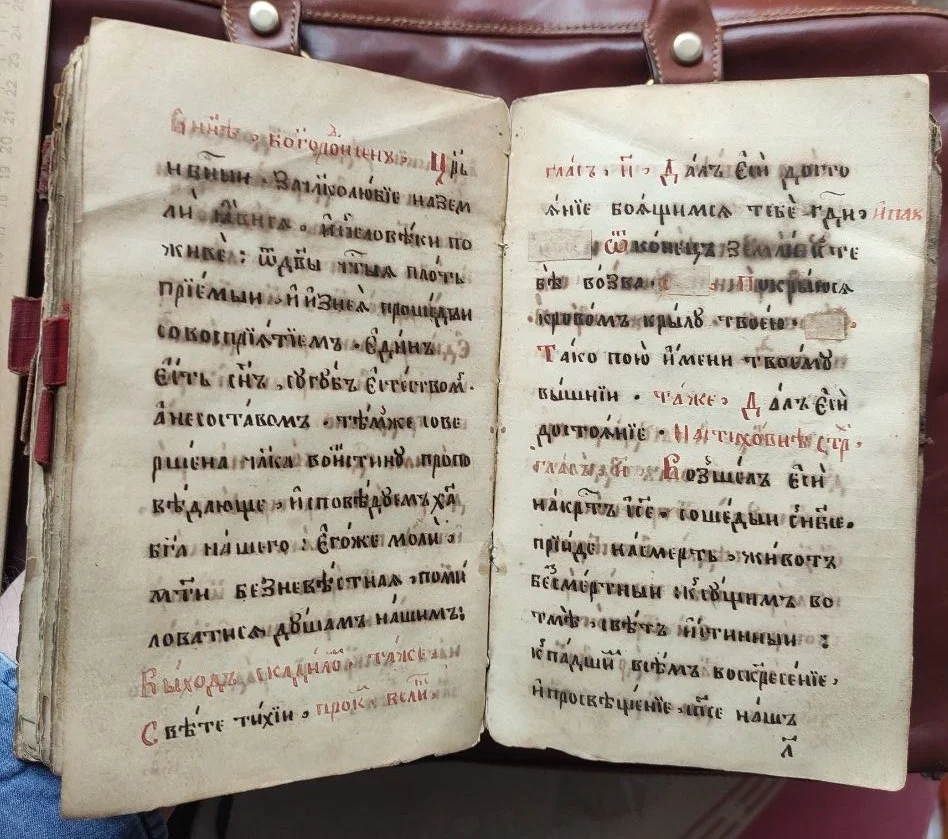 И нн҃ѣ, бог҃оро́диченъ, Цр҃ь
нбⷭ҇ныи, зачл҃колю́бїе назем
лѝ ꙗ҆ви́сѧ, и҆счеловѣ́ки по
живѐ: ѿдв҃ы чтⷭ҇ыѧ пло́ть
прїе́мыи, и҆ и҆знеѧ̀ проше́дыи
совоспрїѧ́тїемъ, є҆ди́нъ
є҆́сть сн҃ъ, сугу́бъ є҆стество́мъ,
а҆несоста́вомъ, тѣ́мже сове
рше́на чл҃ка вои́стину пропо
вѣ́дающе, и҆сповѣ́дуемъ хр҇та̀
бг҃а на́шего: є҆го́же молѝ,
мт҃и безневѣ́стнаѧ, поми́
ловатисѧ ду́шамъ на́шимъ:
Вы́ходъ скади́ломъ, та́же,
Свѣ́те ти́хїи, прок. вели.
гла́съ, и҃, Да́лъ є҆сѝ досто
ѧ́нїе боѧ́щимсѧ тебѐ гдⷭ҇и, и҆пак
ѿконе́цъ землѝ кте
бѣ̀ возва Покры́юсѧ
кро́вомъ крылу̀ твое́ю.
Та́ко пою̀ и҆́мени твоему̀
вы́шнїи. та́же, Да́лъ є҆сѝ
достоѧ́нїе. Настихо́внѣ стр,
гла́съ, Возше́лъ є҆сѝ
накр҇тъ і҆се, соше́дыи снб҃се.
прїи́де насме́рть, живо́тъ
безсме́ртныи и҆су́щимъ во
тмѣ̀, свѣ́тъ и҆́стинныи:
кпа́дшїи всѣ́мъ воскресе́нїе,
и҆просвѣще́нїе, сп҃се на́шъ
л҃